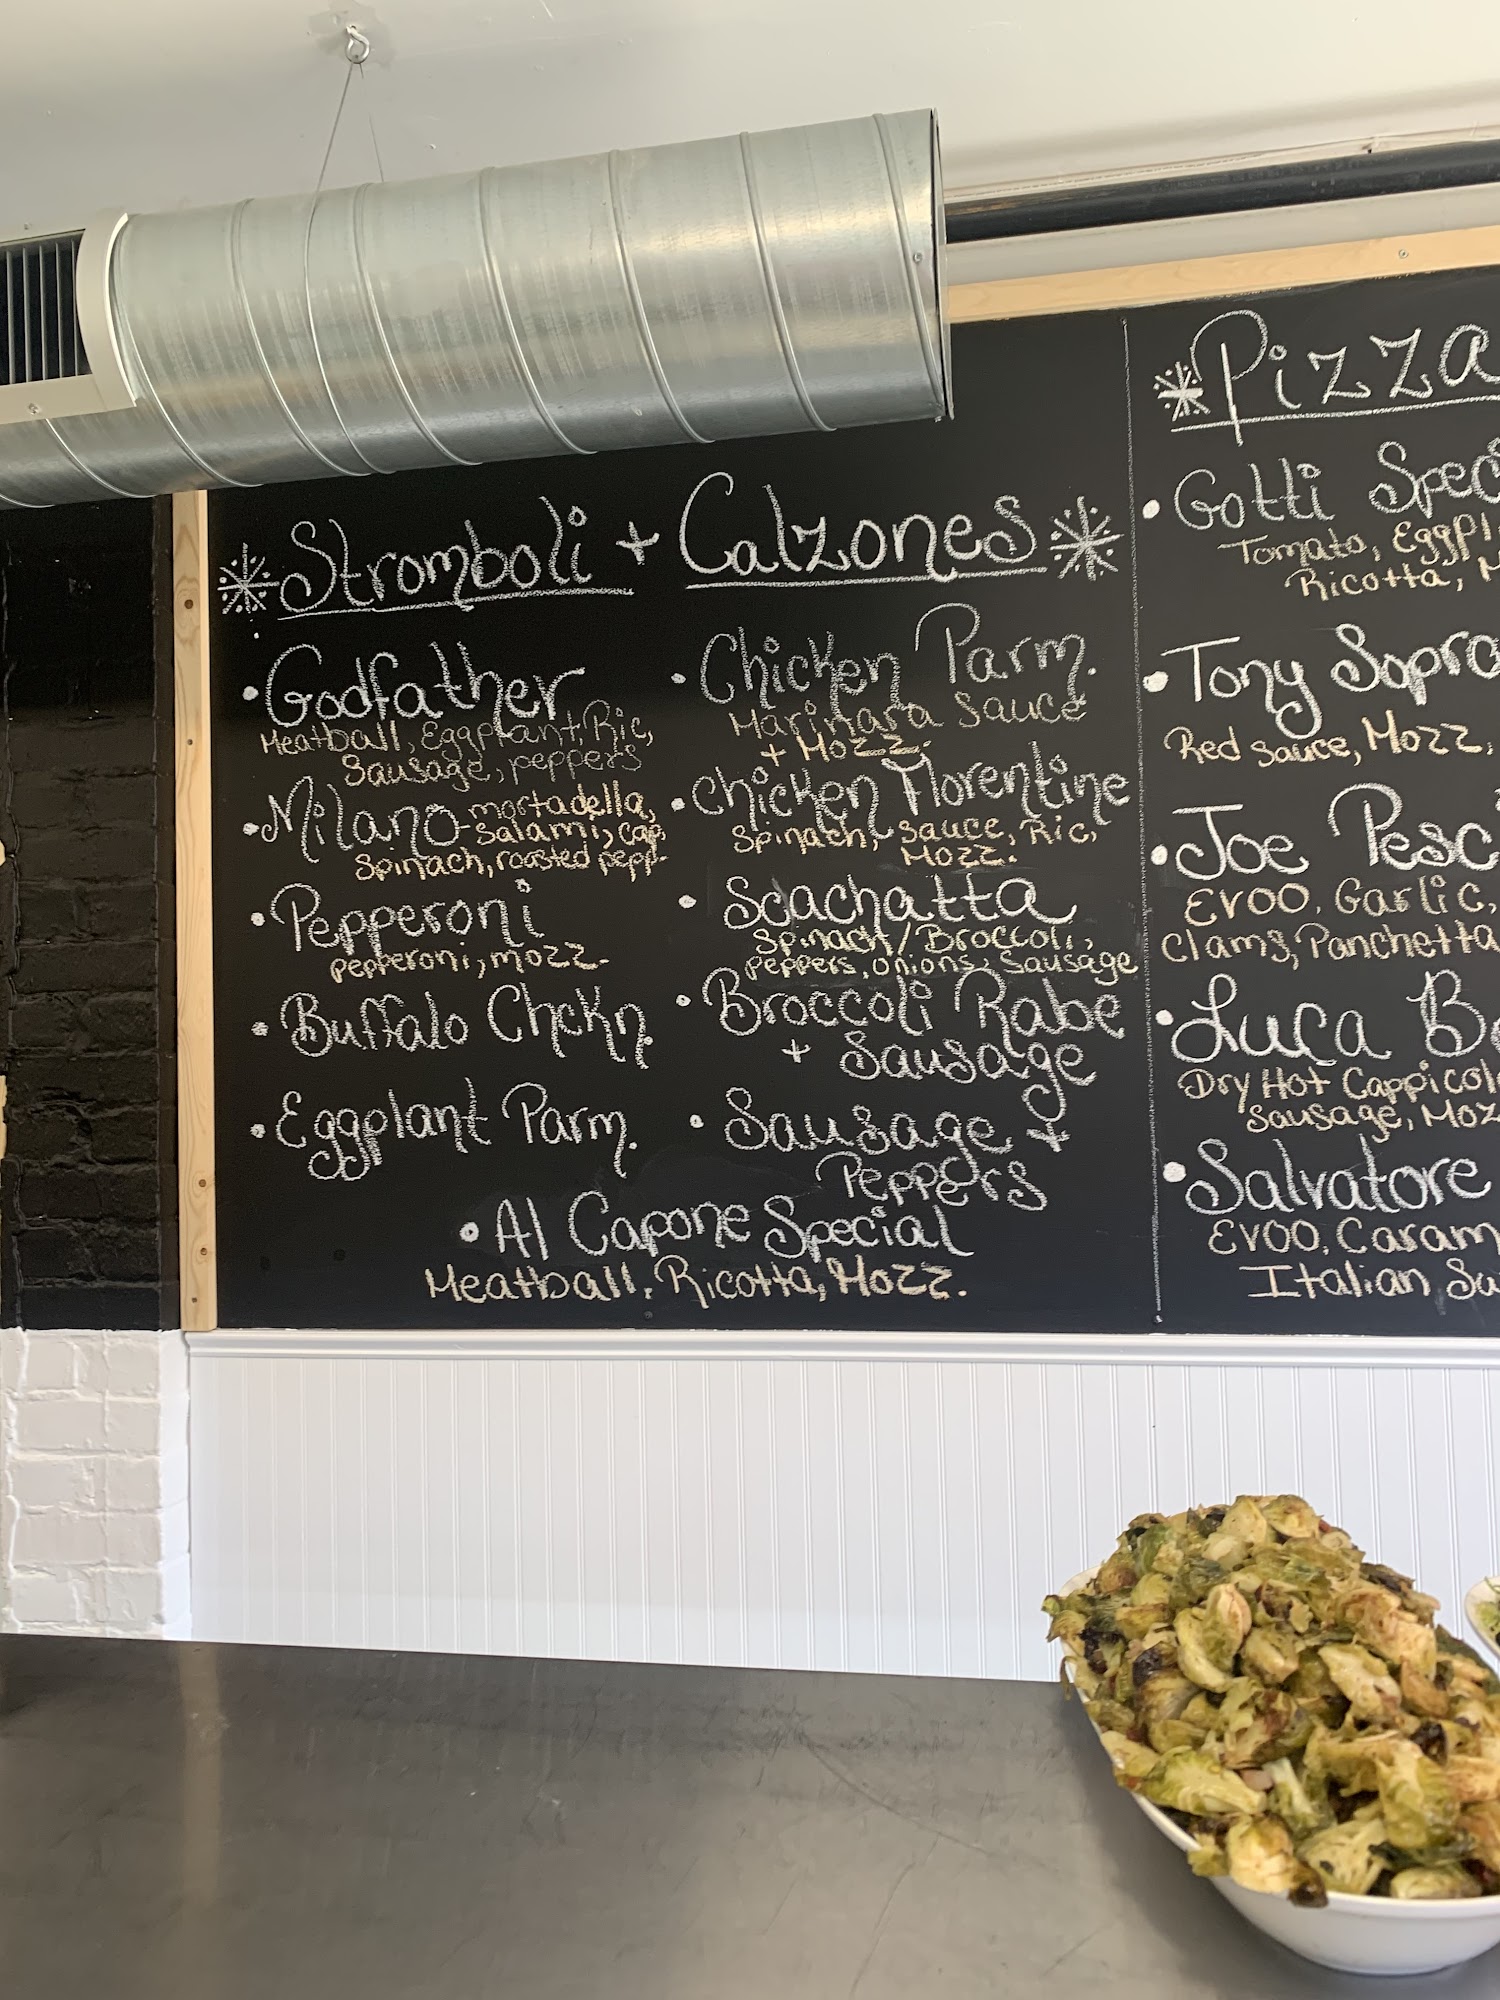 Stromboli + Calzones
Godfather
Meatball, Eggplant, Ric,
Sausage, peppers
Milano - mortadella,
salami, cap,
spinach, roasted pepp.
Pepperoni
pepperoni, mozz.
Buffalo Chckn.
Eggplant Parm.
Chicken Parm.
Marinara Sauce
+ Mozz.
Chicken Florentine
Spinach, sauce, Ric,
Mozz.
Scachatta
Spinach/Broccoli,
peppers, onions, sausage
Broccoli Rabe
+ Sausage
Sausage +
Peppers
Al Capone Special
Meatball, Ricotta, Mozz.
Pizza
Gotti Spec
Tomato, Eggpl
Ricotta, M
Tony Sopra
Red sauce, Mozz,
Joe Pesc
EVOO, Garlic,
Clams, Panchetta
Luca B
Dry Hot Cappicol
Sausage, Moz
Salvatore
EVOO, Caram
Italian Sa